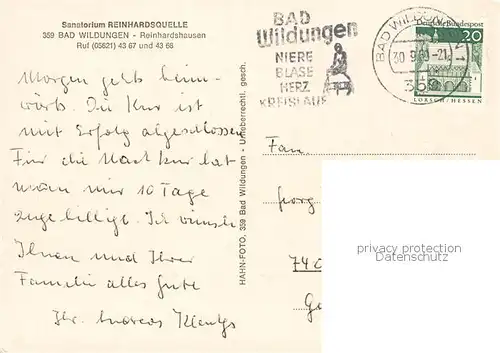 Sanatorium REINHARDSQUELLE
359 BAD WILDUNGEN - Reinhardshausen
Ruf (05621) 43 67 und 43 68
BAD
Wildungen
NIERE
BLASE
HERZ
KREISLAUF
BAD WILDUN
30.9. -21
359
Deutsche Bundespost
20
LORSCH/HESSEN
Morgen geht's heim-
wärts. Die Kur ist
mit Erfolg abgeschlossen
Für die Nachkur hat
man mir 10 Tage
zugebilligt. Ich wünsche
Ihnen und Ihrer
Familie alles Gute
Ihr Andreas
HAHN-FOTO, 359 Bad Wildungen - Urheberrechtl. gesch.
Fam.
Georg
74
privacy protection
Datenschutz